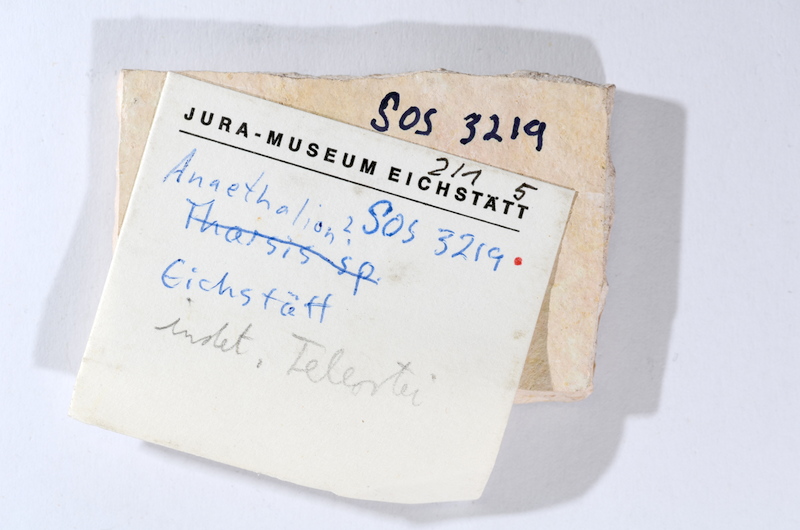 SOS 3219
JURA-MUSEUM EICHSTÄTT
2/1 5
Anaethalion? SOS 3219
Tharsis sp
Eichstätt
indet. Teleostei